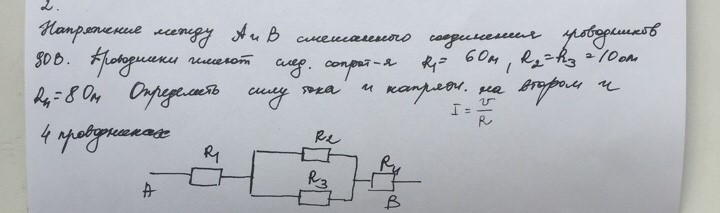 2.
Напряжение между А и В смешанного соединения проводников
90В. Проводники имеют след. сопрот-я R₁= 6Ом, R₂=R₃=10ом
R₄=8Ом Определить силу тока и напряж. на втором и
I = U/R
4 проводниках
R₁
R₂
R₃
R₄
А
В